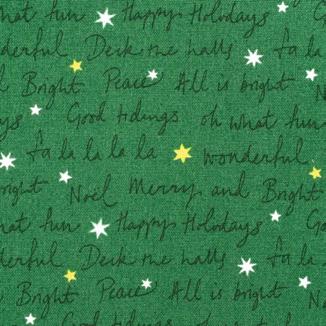 what fun Happy Holidays
wonderful Deck the halls fa la
Bright Peace All is bright
Good tidings oh what fun
fa la la la la wonderful
bright Noel Merry and Bright
what fun Happy Holidays
wonderful Deck the halls fa la
Bright Peace All is bright
Good tidings oh what fun